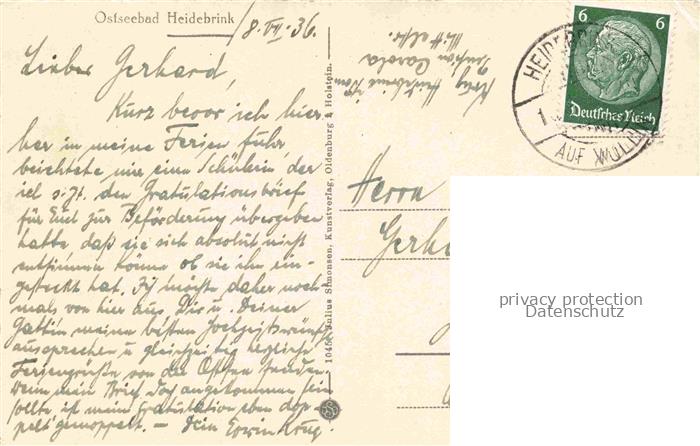 Ostseebad Heidebrink
/8. VII. 36.
Lieber Gerhard,
Kurz bevor ich hier-
her in meine Ferien fuhr,
beichtete mir eine Schülerin, der
ich s. Zt. den Gratulationsbrief
für Euch zur Beförderung übergeben
hatte, daß sie sich absolut nicht
entsinnen könne ob sie ihn ein-
gesteckt hat. Ich möchte daher noch-
mals von hier aus Dir u. Deiner
Gattin meinen besten Hochzeitswünsche
aussprechen u. gleichzeitig herzliche
Feriengrüße von der Ostsee senden.
Wenn mein Brief doch angekommen sein
sollte, ist meine Gratulation eben dop-
pelt gemoppelt. — Dein Erwin Krug.
1045 Julius Simonsen, Kunstverlag, Oldenburg i. Holstein.
JSO
Krug Heidebrink
Pension Carola
6 6
Deutsches Reich
HEIDEBR
1
AUF WOLLIN
Herrn
Gerh
privacy protection
Datenschutz